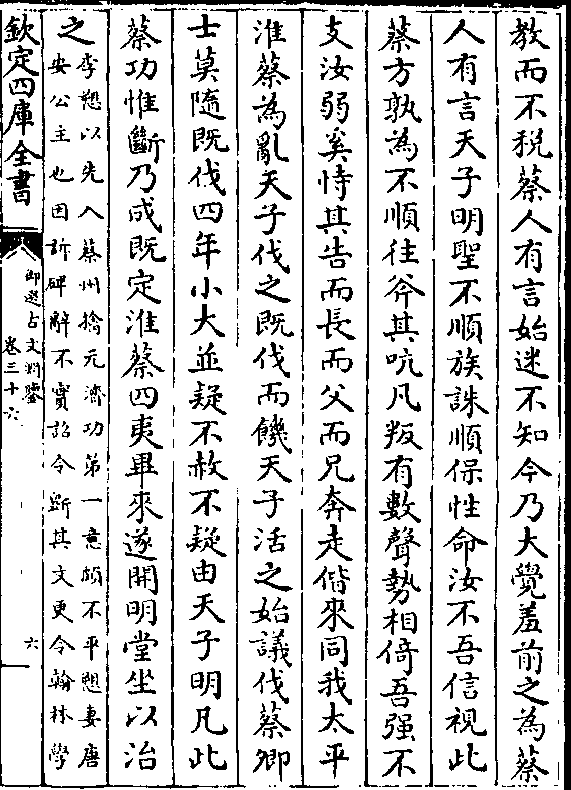 教而不稅蔡人有言始迷不知今乃大覺羞前之為蔡
人有言天子明聖不順族誅順保性命汝不吾信視此
蔡方孰為不順往斧其吭凡叛有數聲勢相倚吾强不
支汝弱奚恃其告而長而父而兄奔走偕來同我太平
淮蔡為亂天子伐之既伐而饑天子活之始議伐蔡卿
士莫隨既伐四年小大並疑不赦不疑由天子明凡此
蔡功惟斷乃成既定淮蔡四夷畢來遂開明堂坐以治
之
李愬以先入蔡州擒元濟功第一意頗不平愬妻唐
安公主也因訴碑辭不實詔令斵其文更令翰林學
欽定四庫全書
御選古文淵鑒
卷三十六
六